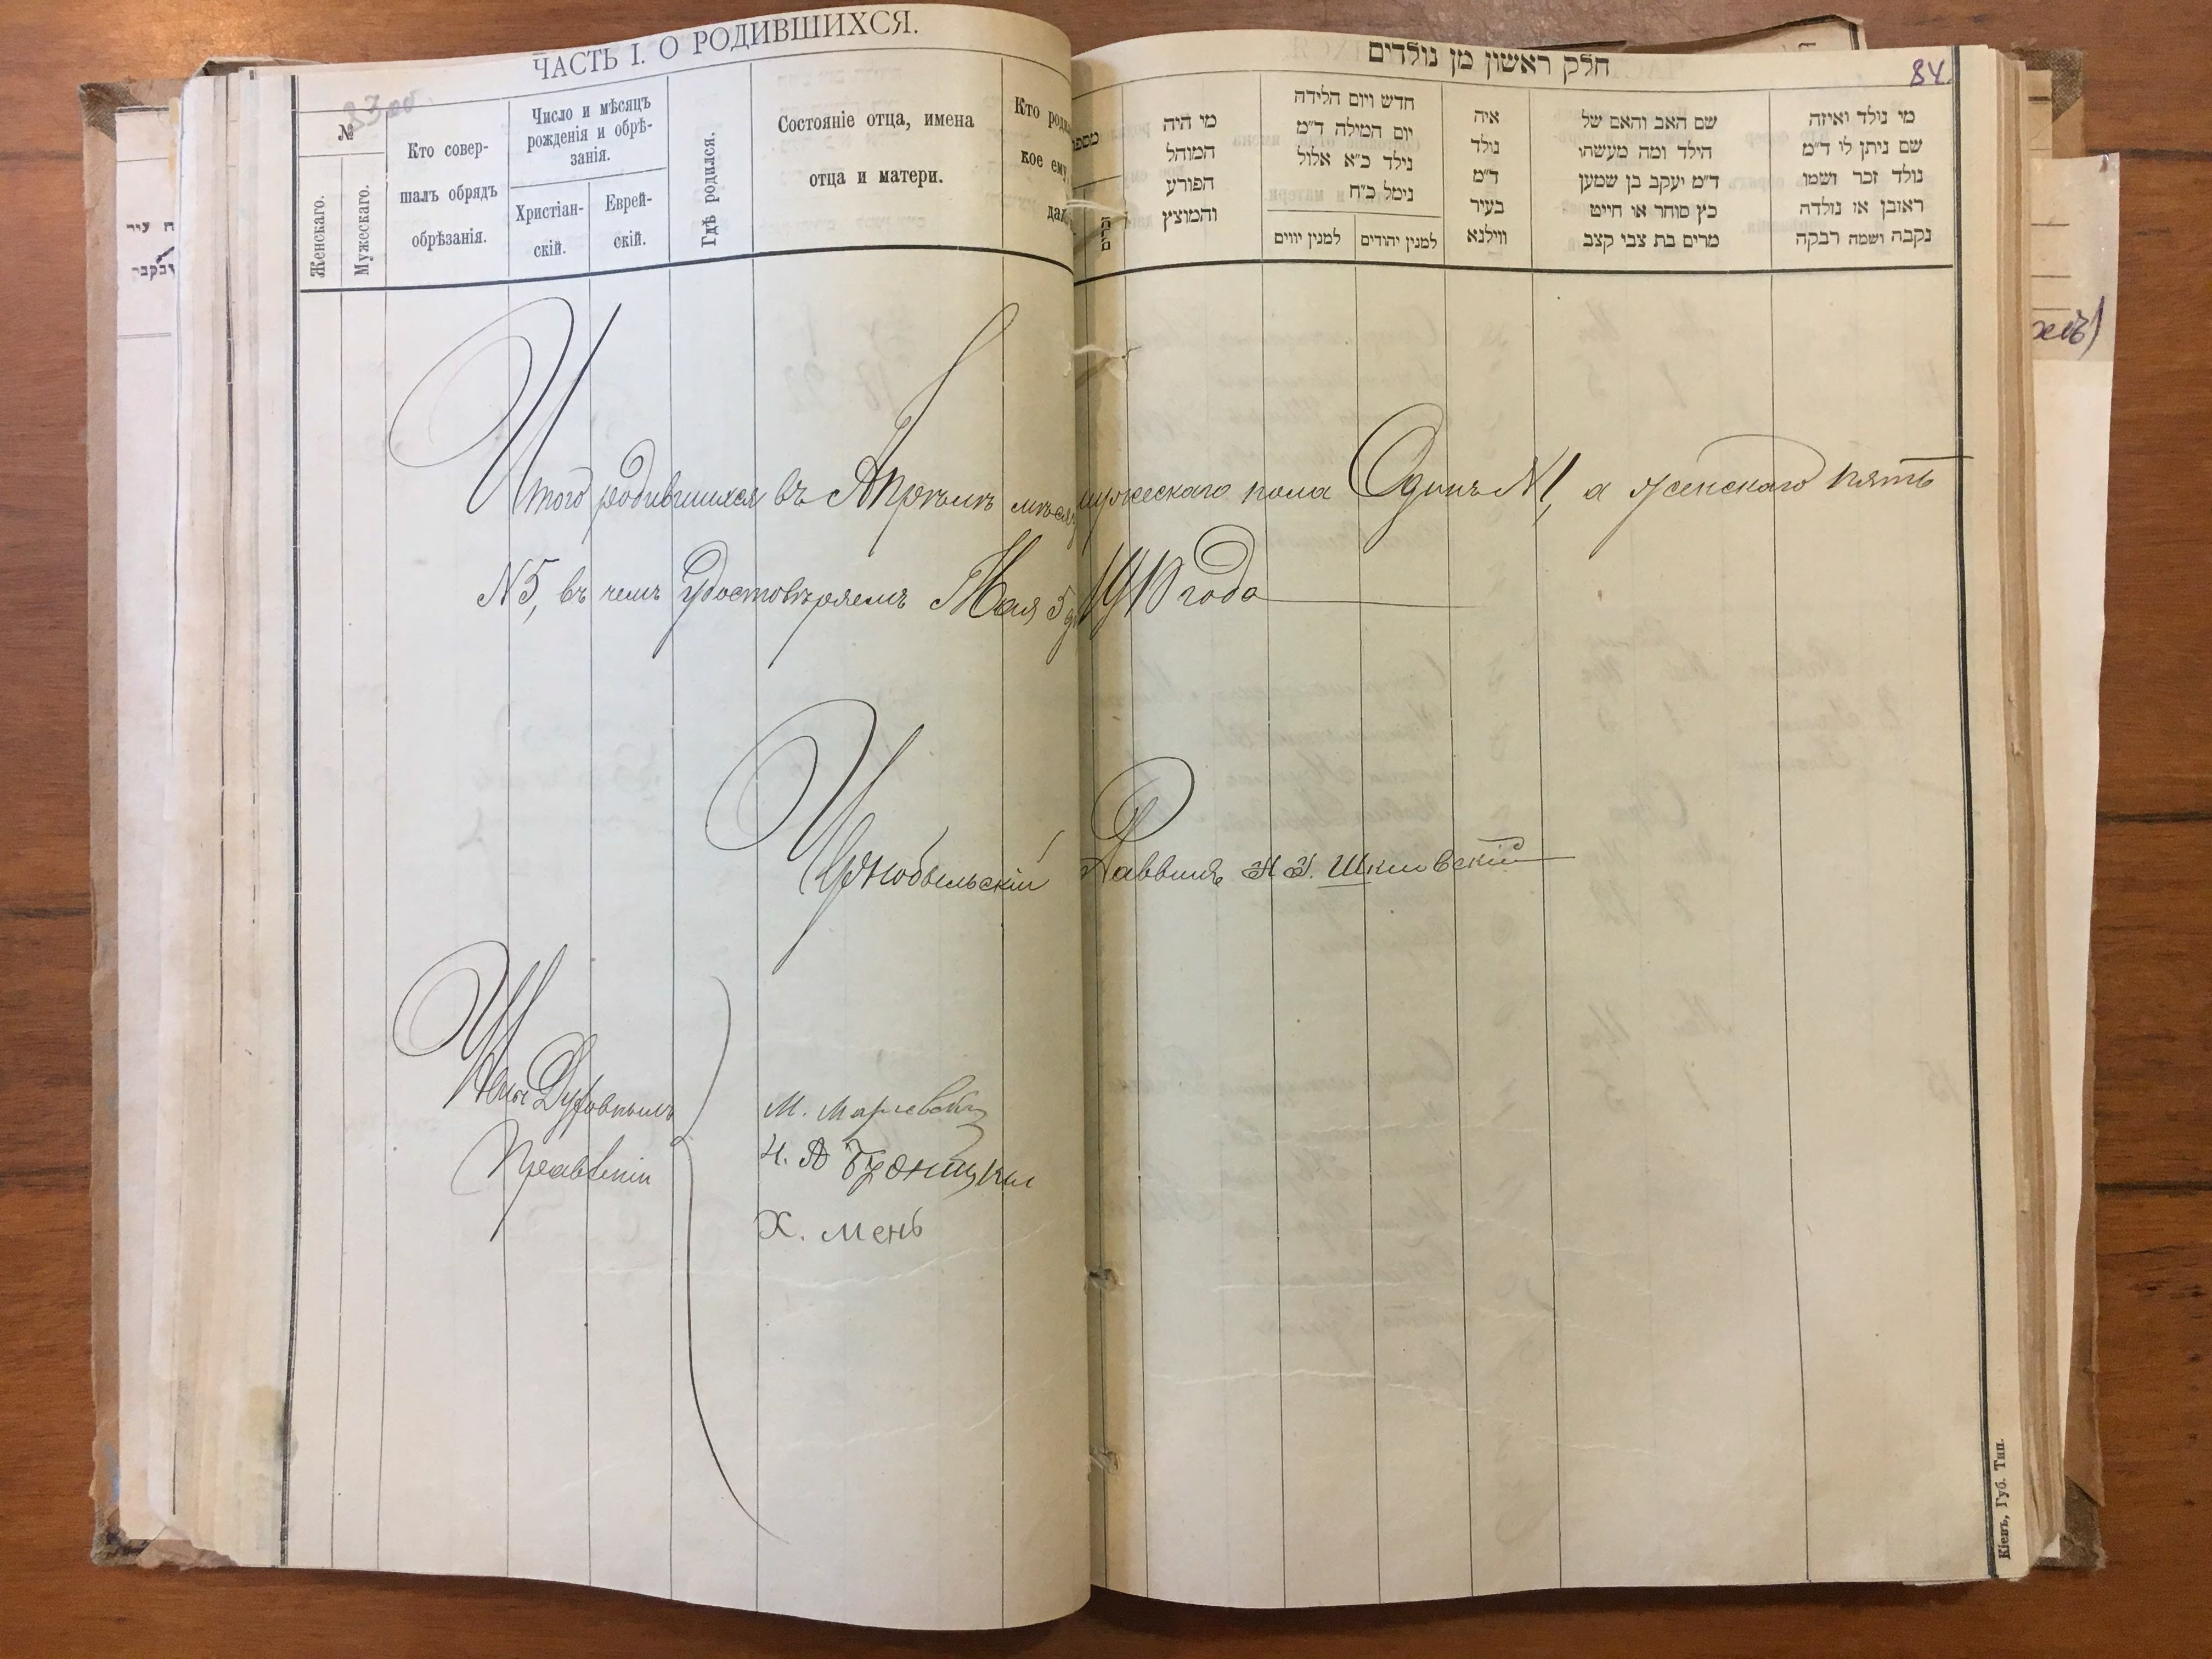 ЧАСТЬ I. О РОДИВШИХСЯ.
№
Женскаго.
Мужескаго.
Кто совер-
шалъ обрядъ
обрѣзанія.
Число и мѣсяцъ
рожденія и обрѣ-
занія.
Христіан-
скій.
Еврей-
скій.
Гдѣ родился.
Состояніе отца, имена
отца и матери.
Кто
кое ему
חלק ראשון מן נולדים
84.
מי היה
המוהל
הפורע
והמוצץ
חדש ויום הלידה
יום המילה ד"מ
נילד כ"א אלול
נימל כ"ח
למנין יהודים
למנין יווים
איה
נולד
ד"מ
בעיר
ווילנא
שם האב והאם של
הילד ומה מעשתו
ד"מ יעקב בן שמען
כץ סוחר או חייט
מרים בת צבי קצב
מי נולד ואיזה
שם ניתן לו ד"מ
נולד זכר ושמו
ראובן או נולדה
נקבה ושמה רבקה
Итого родившихся въ Апрѣлѣ мѣсяцѣ мужескаго пола Одинъ №1, а женскаго пять
№5, въ чемъ удостовѣряемъ Мая 5 дня 1910 года
Чернобыльскій Раввинъ Шкловскій
Члены Духовнаго
Правленія
М.
Х. Мень
Кіевъ, Губ. Тип.